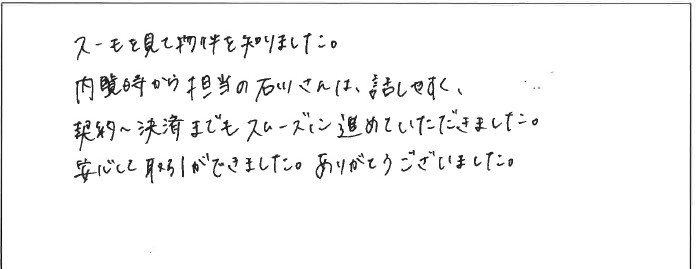 スーモを見て物件を知りました。
内覧時から担当の石川さんは、話しやすく、
契約～決済までもスムーズに進めていただきました。
安心して取引ができました。ありがとうございました。